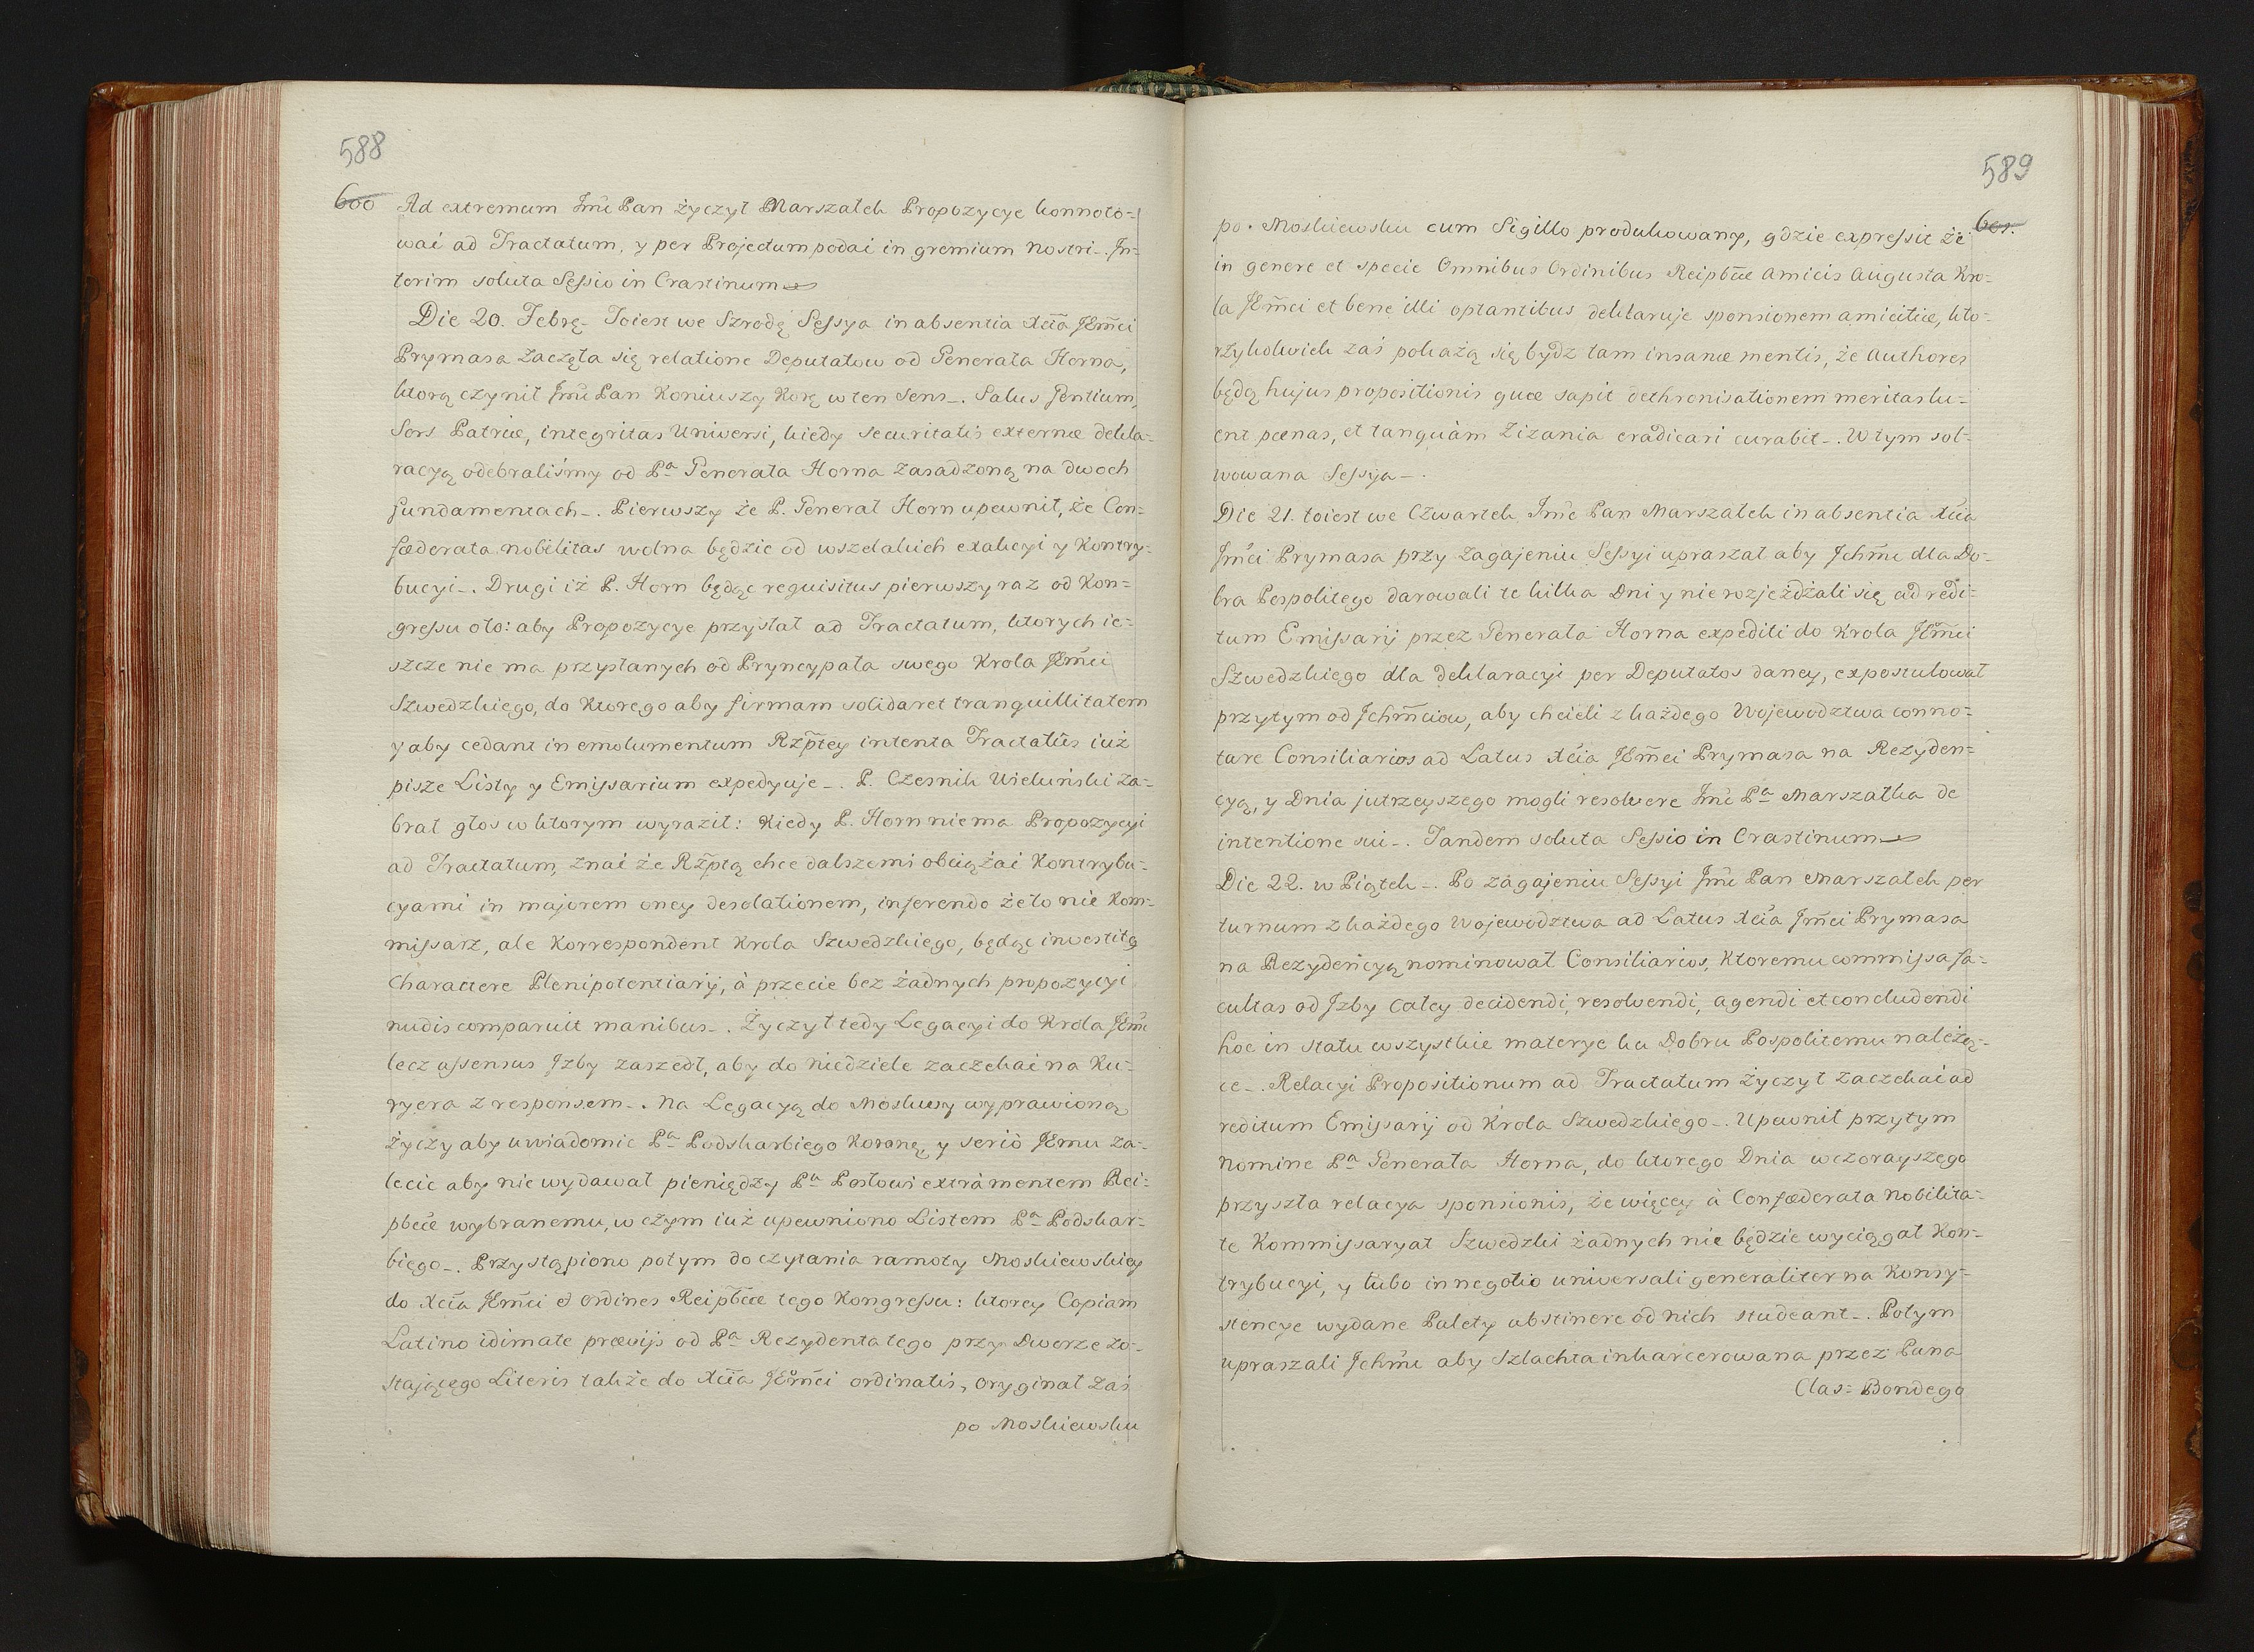 588
600
Ad extremum Jmć Pan życzył Marszałek Propozycye konnoto=
wać ad Tractatum, y per Projectum podać in gremium nostri_. In=
terim soluta Sessio in Crastinum
Die 20. Febrę_ Toiest we Szrodę Sessya in absentia Xcia JEmci
Prymasa zaczęła się relatione Deputatow od Generała Horna,
ktorą czynił Jmć Pan Koniuszy Korę w ten sens_. Salus Gentium,
Sors Patriæ, integritas Universi, kiedy securitatis externæ dekla=
racyą odebraliśmy od Pa Generała Horna zasadzoną na dwoch
fundamentach_. Pierwszy że P. Generał Horn upewnił, że Con=
fœderata nobilitas wolna będzie od wszelakich exakcyi y Kontry=
bucyi_. Drugi iż P. Horn będąc requisitus pierwszy raz od Kon=
gressu oto: aby Propozycye przysłał ad Tractatum, ktorych ie=
szcze nie ma przysłanych od Pryncypała swego Krola JEmci
Szwedzkiego, do Ktorego aby firmam solidaret tranquillitatem
y aby cedant in emolumentum Rzptey intenta Tractatûs iuż
pisze Listy y Emissarium expedyuje_. P. Czesnik Wieluński za=
brał głos w ktorym wyraził: Kiedy P. Horn niema Propozycyi
ad Tractatum, znać że Rzptą chce dalszemi obciążać Kontrybu=
cyami in majorem oney desolationem, inferendo że to nie Kom=
missarz, ale Korrespondent Krola Szwedzkiego, będąc investitą
Charactere Plenipotentiarÿ, à przecie bez żadnych propozycyi
nudis comparuit manibus_. Życzył tedy Legacyi do Krola JEmci
lecz assensus Jzby zaszedł, aby do niedziele zaczekać na Ku=
ryera z responsem_. Na Legacyą do Moskwy wyprawioną
życzy aby uwiadomić Pa Podskarbiego Koronę, y seriò JEmu za=
lecić aby nie wydawał pieniędzy Pu Posłowi extrà mentem Rei=
pbcæ wybranemu, w czym iuż upewniono Listem Pa Podskar=
biego_. Przystąpiono potym do czytania ramoty Moskiewskiey
do Xcia JEmci & Ordines Reipbcæ tego Kongressu: ktorey Copiam
Latino idimate prævijs od Pa Rezydenta tego przy Dworze zo=
stającego Literis także do Xcia JEmci ordinatis, Oryginał zaś
po Moskiewsku
589
601.
po. Moskiewsku cum Sigillo produkowany, gdzie expressit że
in genere et specie Omnibus Ordinibus Reipbcæ Amicis Augusta Kro=
la JEmci et bene illi optantibus deklaruje sponsionem amicitiæ, kto=
rzykolwiek zaś pokażą się bydz tam insanæ mentis, że Authores
będą hujus propositionis quæ sapit dethronisationem meritas lu=
ent pœnas, et tanquàm Zizania eradicari curabit_. W tym sol=
wowana Sessya_.
Die 21. toiest we Czwartek Jmć Pan Marszałek in absentia Xcia
Jmći Prymasa przy zagajeniu Sessyi upraszał aby Jchmć dla Do=
bra Pospolitego darowali te kilka Dni y nie rozjeżdżali się ad redi=
tum Emissarÿ przez Generała Horna expediti do Krola JEmci
Szwedzkiego dla deklaracyi per Deputatos daney, expostulował
przytym od Jchmciow, aby chcieli z każdego Wojewodztwa conno=
tare Consiliarios ad Latus Xcia JEmci Prymasa na Rezyden=
cyą, y Dnia jutrzeyszego mogli resolvere Jmć Pa Marszałka de
intentione sui_. Tandem soluta Sessio in Crastinum
Die 22. w Piątek_. Po zagajeniu Sessyi Jmć Pan Marszałek per
turnum z każdego Wojewodztwa ad Latus Xcia Jmći Prymasa
na Rezydencyą nominował Consiliarios, Ktoremu commissa fa=
cultas od Jzby całey decidendi, resolvendi, agendi et concludendi
hoc in statu wszystkie materye ku Dobru Pospolitemu należą=
ce_. Relacyi Propositionum ad Tractatum życzył zaczekać ad
reditum Emissarÿ od Krola Szwedzkiego_. Upewnił przytym
Nomine Pa Generała Horna, do ktorego Dnia wczorayszego
przyszła relacya sponsionis, że więcey à Confœderata Nobilita=
te Kommissaryat Szwedzki żadnych nie będzie wyciągał Kon=
trybucyi, y lubo in negotio universali generaliter na Konsy=
stencye wydane Palety abstinere od nich studeant_. Potym
upraszali Jchmć aby Szlachta inkarcerowana przez Pana
Clas= Bondego